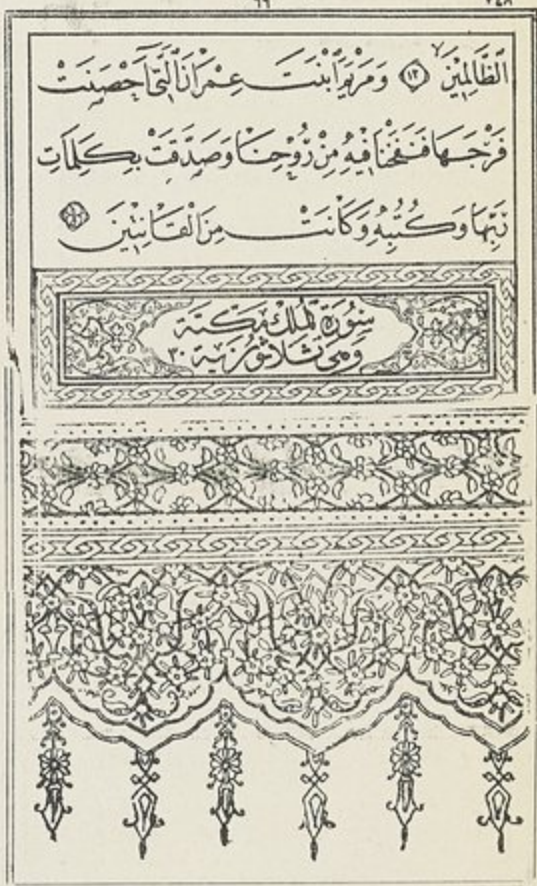 ٦٦ ٢٤٨
الظَّالِمِيْنَ ﴿١٢﴾ وَمَرْيَمَ ابْنَتَ عِمْرَانَ الَّتِيٓ اَحْصَنَتْ
فَرْجَهَا فَنَفَخْنَا فِيْهِ مِنْ رُّوْحِنَا وَصَدَّقَتْ بِكَلِمَاتِ
رَبِّهَا وَكُتُبِهٖ وَكَانَتْ مِنَ الْقَانِتِيْنَ
سُوْرَةُ الْمُلْكِ مَكِّيَّة
وَهِيَ ثَلَاثُوْنَ اٰيَة ٣٠